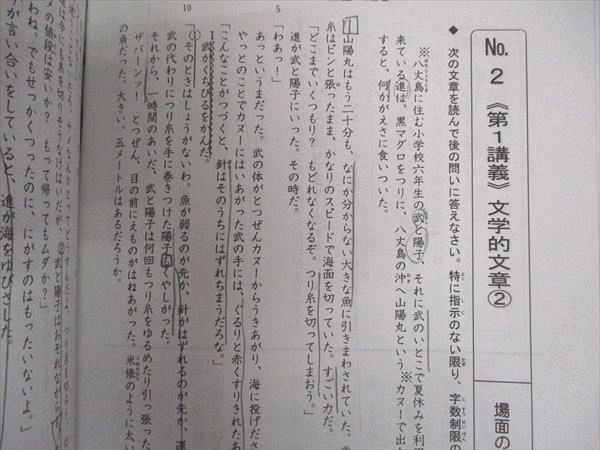 No.2 《第1講義》 文学的文章②
場面の
◆ 次の文章を読んで後の問いに答えなさい。特に指示のない限り、字数制限の
※八丈島に住む小学校六年生の武と陽子、それに武のいとこで夏休みを利用
来ている進は、黒マグロをつりに、八丈島の沖へ山陽丸という※カヌーで出
すると、何かがえさに食いついた。
山陽丸はもう二十分も、なにか分からない大きな魚に引きまわされていた。
糸はピンと張ったまま、かなりのスピードで海面を切っていった。すごい力だ。
「どこまでいくつもり？ もどれなくなるぞ。つり糸を切ってしまおう。」
進が武と陽子にいった。その時だ。
「わあっ！」
5
あっというまだった。武の体がとつぜんカヌーからうきあがり、海に投げださ
やっとのことでカヌーにはいあがった武の手には、ぐるりと赤くすりきれたあ
「こんなことがつづくと、針はそのうちにはずれちまうだろな。」
武がくちびるをかんだ。
「そのときはしょうがないわ。魚が弱るのが先か、針がはずれるのが先か、運
10
武の代わりにつり糸を手に巻きつけた陽子もくやしがった。
それから、一時間のあいだ、武と陽子は何回もつり糸をゆるめたり引っ張った
ザバーンッ！ とつぜん、目の前にえものがはねあがった。米俵のように太い
の魚だった。大きい。五メートルはあるだろうか。
道は今にも糸を切りそうなけはいだが、②武と陽子はおそれながらも
メの値段は安いか？ もって帰ってもムダか？」
わね。でもせっかくつったのに、にがすのはもったいないよ。」
が言い合いをしていると、進が海をゆびさした。